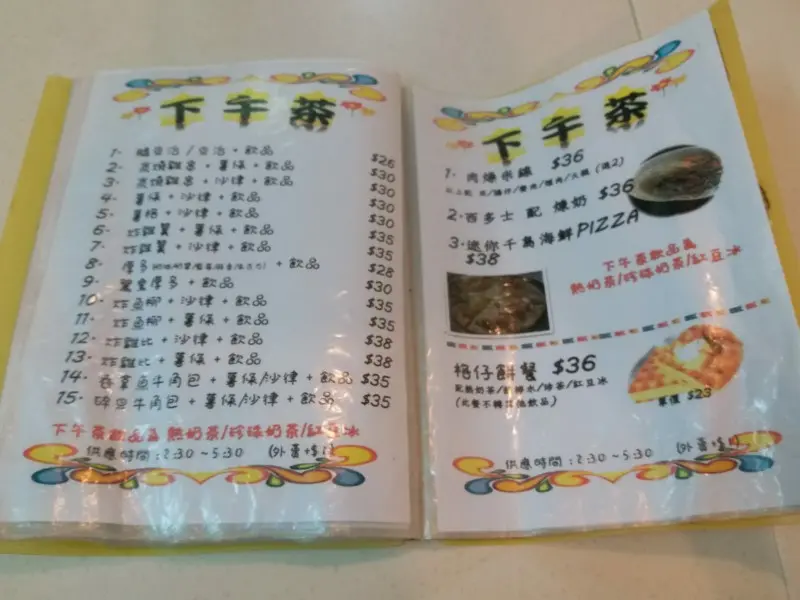 下午茶
1- 腿蛋治/蛋治+飲品 $26
2- 炭燒雞串+薯條+飲品 $30
3- 炭燒雞串+沙律+飲品 $30
4- 薯條+沙律+飲品 $30
5- 薯格+沙律+飲品 $30
6- 炸雞翼+薯條+飲品 $35
7- 炸雞翼+沙律+飲品 $35
8- 厚多 +飲品 $28
9- 鴛鴦厚多+飲品 $30
10- 炸魚柳+沙律+飲品 $35
11- 炸魚柳+薯條+飲品 $35
12- 炸雞比+沙律+飲品 $38
13- 炸雞比+薯條+飲品 $38
14- 吞拿魚牛角包+薯條/沙律+飲品 $35
15- 碎蛋牛角包+薯條/沙律+飲品 $35
下午茶飲品為 熱奶茶/珍珠奶茶/紅豆冰
供應時間:2:30~5:30 (外賣+$1)
下午茶
1. 肉燥米線 $36
(選2)
2.西多士 配 煉奶 $36
3.迷你千島海鮮PIZZA
$38
下午茶飲品為
熱奶茶/珍珠奶茶/紅豆冰
格仔餅餐 $36
配熱奶茶/檸檬水/珍茶/紅豆冰
(此餐不轉其他飲品)
單價 $23
供應時間:2:30~5:30 (外賣+$1)